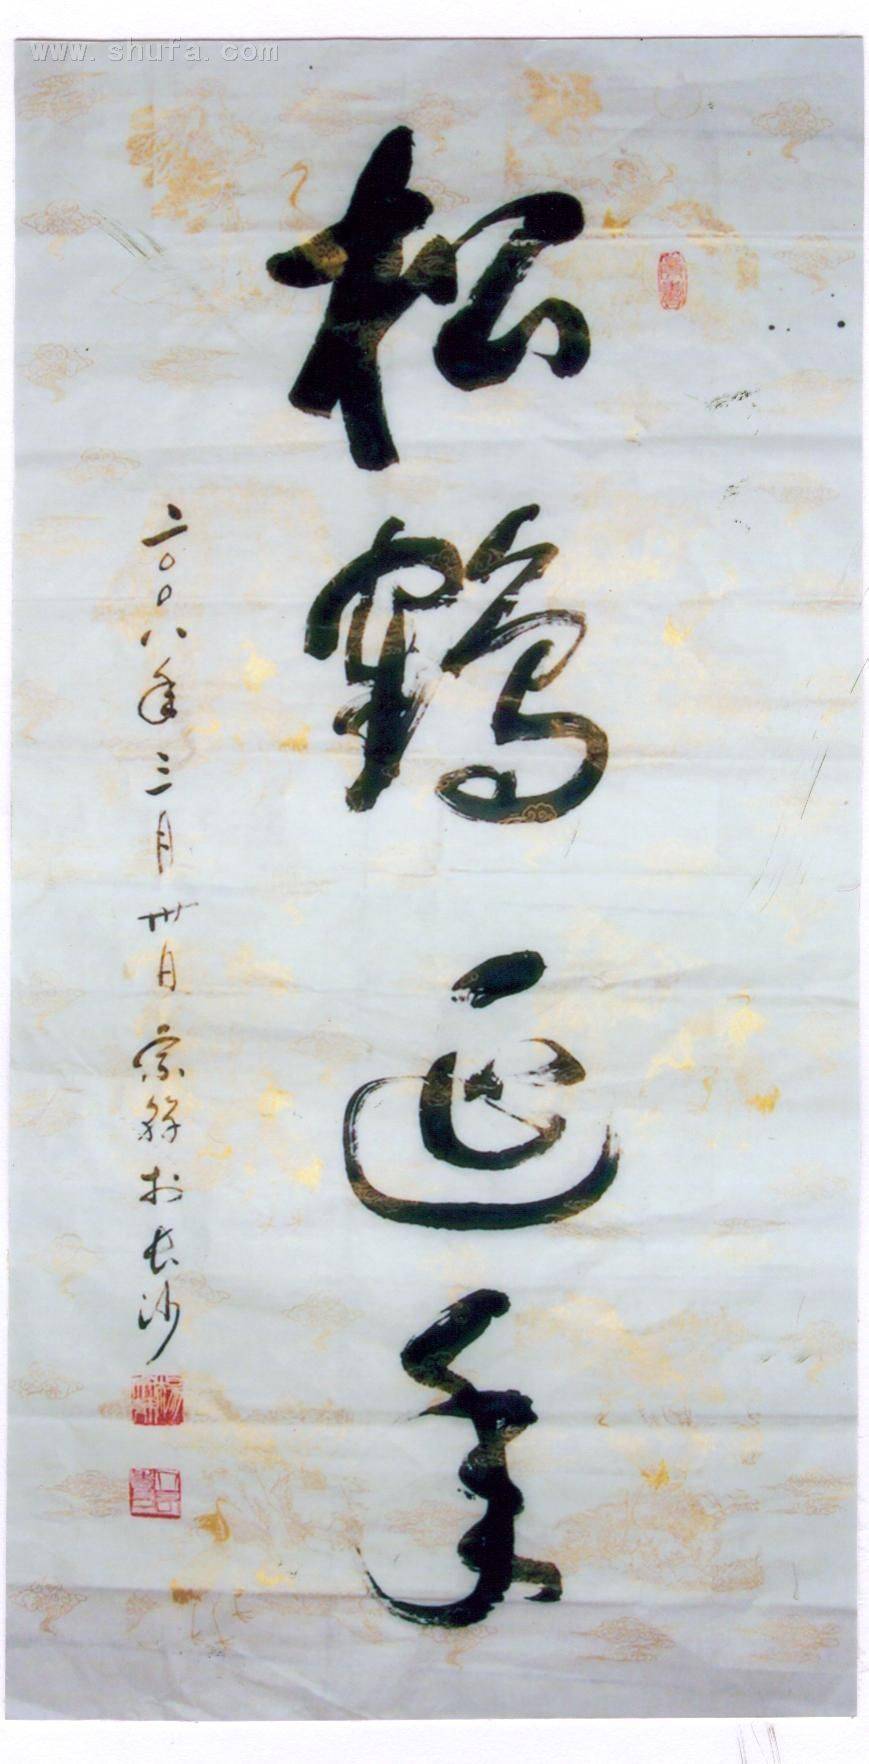 www.shufa.com
松鹤延年
二〇〇八年三月卅日宗䋣於长沙